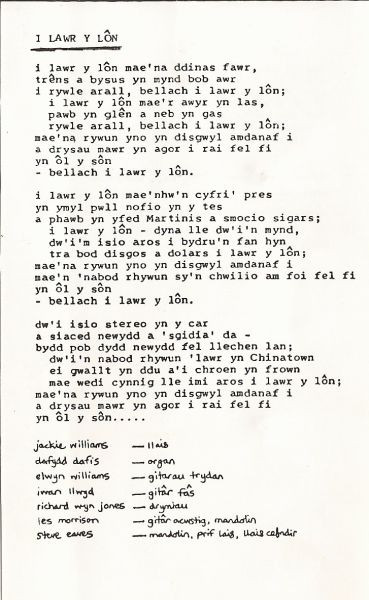 I LAWR Y LÔN
i lawr y lôn mae'na ddinas fawr,
trêns a bysus yn mynd bob awr
i rywle arall, bellach i lawr y lôn;
i lawr y lôn mae'r awyr yn las,
pawb yn glên a neb yn gas
rywle arall, bellach i lawr y lôn;
mae'na rywun yno yn disgwyl amdanaf i
a drysau mawr yn agor i rai fel fi
yn ôl y sôn
- bellach i lawr y lôn.
i lawr y lôn mae'nhw'n cyfri' pres
yn ymyl pwll nofio yn y tes
a phawb yn yfed Martinis a smocio sigars;
i lawr y lôn - dyna lle dw'i'n mynd,
dw'i'm isio aros i bydru'n fan hyn
tra bod disgos a dolars i lawr y lôn;
mae'na rywun yno yn disgwyl amdanaf i
mae'n 'nabod rhywun sy'n chwilio am foi fel fi
yn ôl y sôn
- bellach i lawr y lôn.
dw'i isio stereo yn y car
a siaced newydd a 'sgidia' da -
bydd pob dydd newydd fel llechen lan;
dw'i'n nabod rhywun 'lawr yn Chinatown
ei gwallt yn ddu a'i chroen yn frown
mae wedi cynnig lle imi aros i lawr y lôn;
mae'na rywun yno yn disgwyl amdanaf i
a drysau mawr yn agor i rai fel fi
yn ôl y sôn.....
jackie williams — llais
dafydd dafis — organ
elwyn williams — gitarau trydan
iwan llwyd — gitâr fâs
richard wyn jones — drymiau
les morrison — gitâr acwstig, mandolin
steve eaves — mandolin, prif lais, llais cefndir